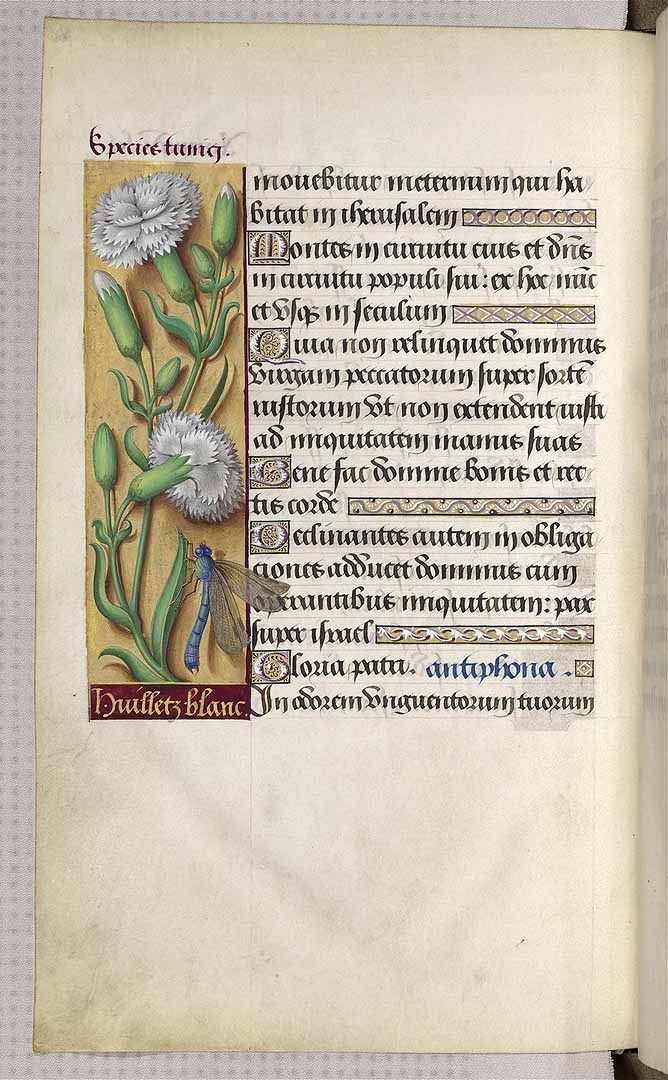 Species tunici.
mouebitur ineternum qui ha
bitat in iherusalem
Montes in circuitu eius et dn̄s
in circuitu populi sui: ex hoc nūc
et vsqȝ in seculum
Quia non relinquet dominus
virgam peccatorum super sortē
iustorum vt non extendent iusti
ad iniquitatem manus suas
Bene fac domine bonis et rec
tis corde
Declinantes autem in obliga
ciones adducet dominus cum
operantibus iniquitatem: pax
super israel
Gloria patri. antiphona.
In odorem vnguentorum tuorum
Huilletz blanc.